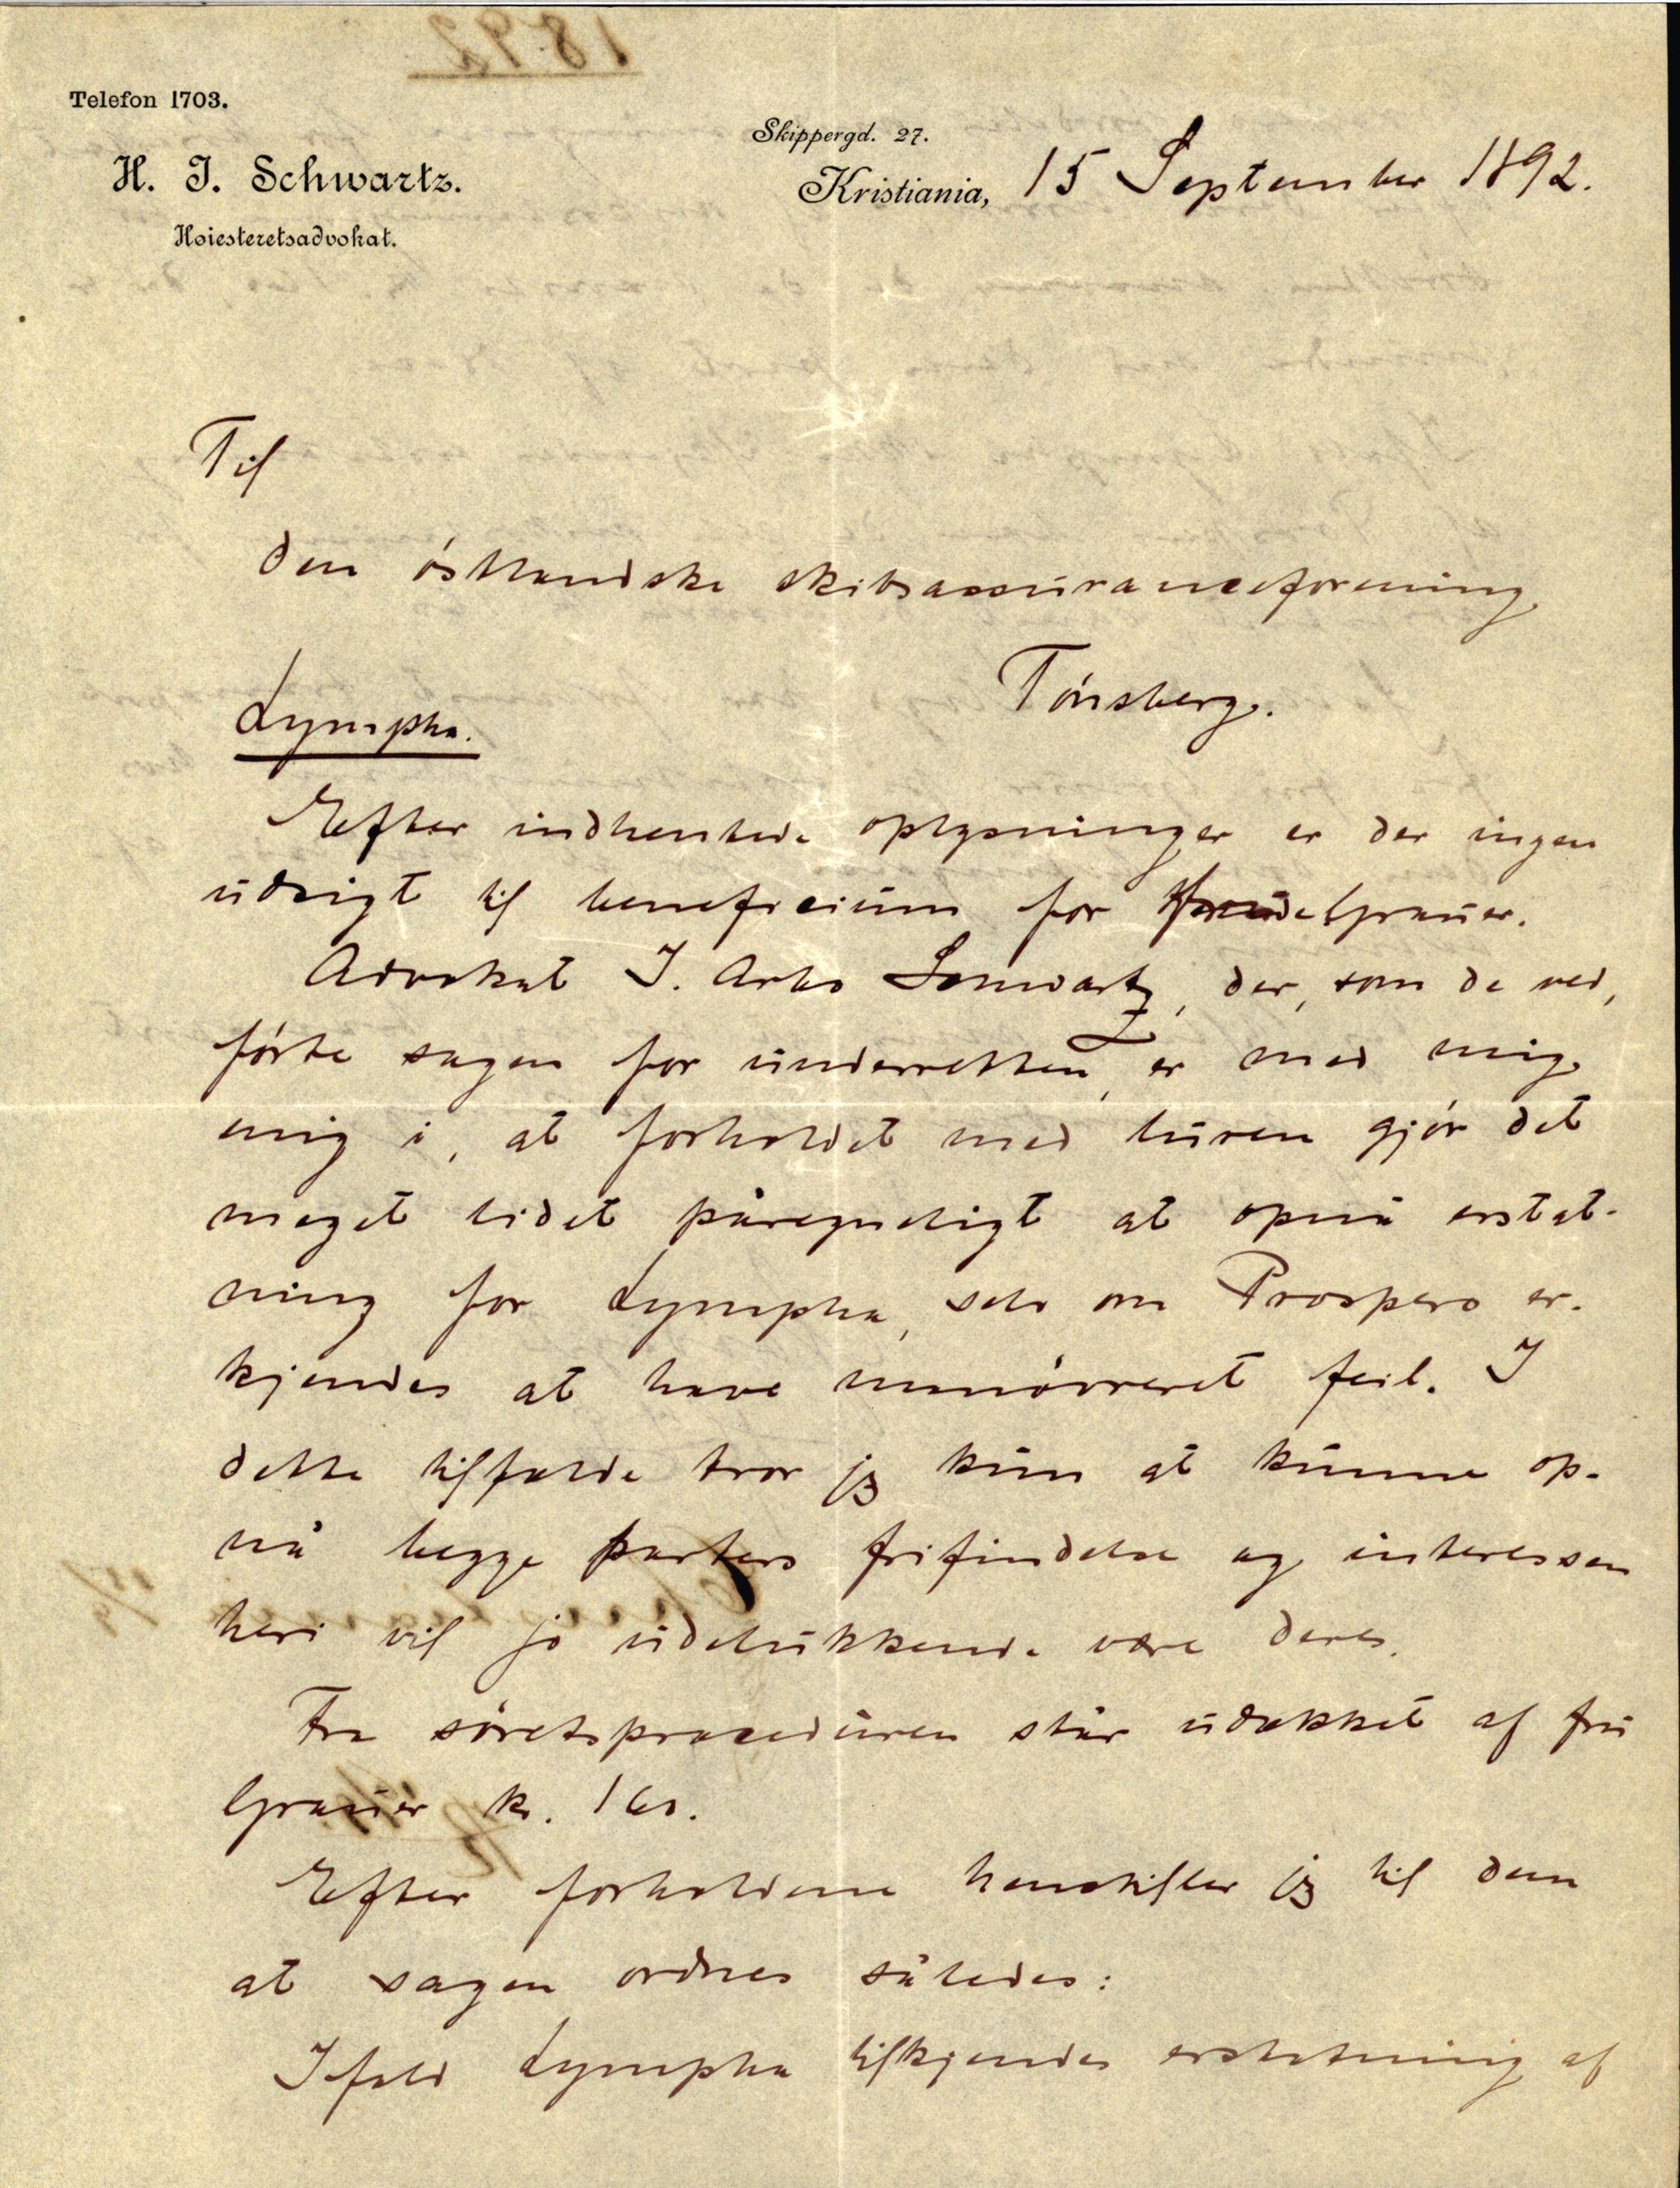 1892
Telefon 1703.
H. J. Schwartz.
Høiesteretsadvokat.
Skippergd. 27.
Kristiania, 15 September 1892.
Til
den östlandske skibsassuranceforening
Tönsberg.
Lympha.
Efter indhentede oplysninger er der ingen
udsigt til beneficium for Grauer.
Advokat J. Arbo Schwartz, der, som de ved,
förte sagen for underretten, er med mig
enig i, at forholdet med luren gjör det
meget lidet påregneligt at opnå erstat-
ning for Lympha, selv om Prospero er-
kjendes at have manövreret feil. I
dette tilfælde tror jeg kun at kunne op-
nå begge parters frifindelse og interessen
heri vil jo udelukkende være deres.
Fra söretsproceduren står udækket af fru
Grauer kr. 160.
Efter forholdene henstiller jeg til dem
at sagen ordnes således:
Ifald Lympha tilkjendes erstatning af